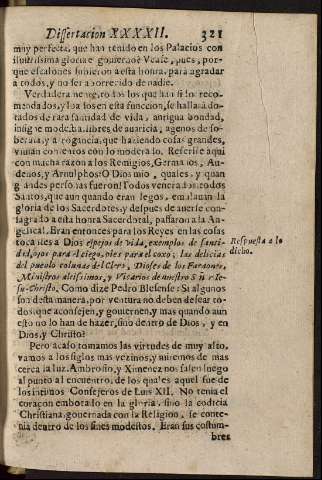 Dissertacion XXXXII. 321
muy perfecta, que han tenido en los Palacios con
ilustrissima gloria el govierno? Vease, pues, por-
que escalones subieron a esta honra, para agradar
a todos, y no ser aborrecido de nadie.
Verdaderamente, todos los que han sido reco-
mendados, y loados en esta funccion, se hallará do-
tados de rara santidad de vida, antigua bondad,
insigne modestia, libres de auaricia, agenos de so-
beruia, y arrogancia, que haziendo cosas grandes,
viuian contentos con lo moderado. Referirè aqui
con mucha razon a los Remigios, Germanos, Au-
denos, y Arnulphos! O Dios mio, quales, y quan
grandes personas fueron! Todos venerados todos
Santos, que aun quando eran legos, emulauan la
gloria de los Sacerdotes, y despues de auerse con-
sagrado a esta honra Sacerdotal, passaron a la An-
gelical. Eran entonces para los Reyes en las cosas
tocantes a Dios espejos de vida, exemplos de santi-
dad, ojos para el ciego, pies para el coxo; las delicias
del pueblo colunas del Clero, Dioses de los Faraones,
Ministros altissimos, y Vicarios de nuestro Señor Ie-
su-Christo. Como dize Pedro Blesense: Si algunos
son desta manera, por ventura no deben desear to-
dos que aconsejen, y gouiernen, y mas quando aun
esto no lo han de hazer, sino dentro de Dios, y en
Dios, y Christo?
Pero acaso tomamos las virtudes de muy alto,
vamos a los siglos mas vezinos, y miremos de mas
cerca la luz. Ambrosio, y Ximenez nos salen luego
al punto al encuentro, de los quales aquel fue de
los intimos Consejeros de Luis XII. No tenia el
coraçon embotado en la gloria, sino la codicia
Christiana, gouernada con la Religion, se conte-
nia dentro de los fines modestos. Eran sus costum-
bres
Respuesta a lo
dicho.